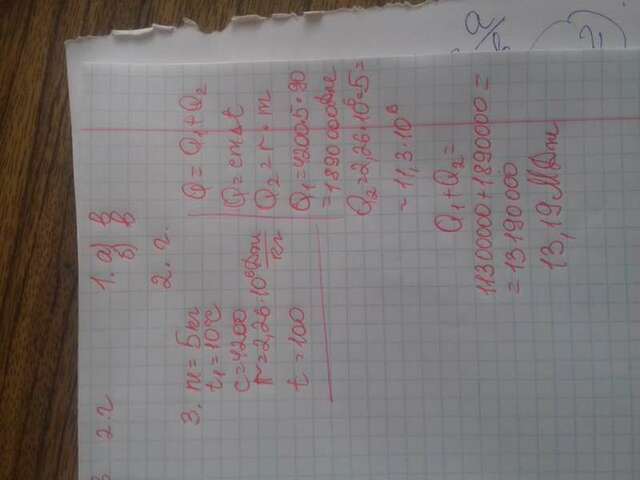 2.г
1. а) в
б) в
2. г.
3. m = 5кг
t₁ = 10°C
c = 4200
r = 2,26·10⁶ Дж/кг
t = 100
Q = Q₁ + Q₂
Q = cmΔt
Q₂ = r · m
Q₁ = 4200·5·90
= 1890000Дж
Q₂ = 2,26·10⁶·5 =
= 11,3·10⁶
Q₁ + Q₂ =
11300000 + 1890000 =
= 13190000
13,19 МДж